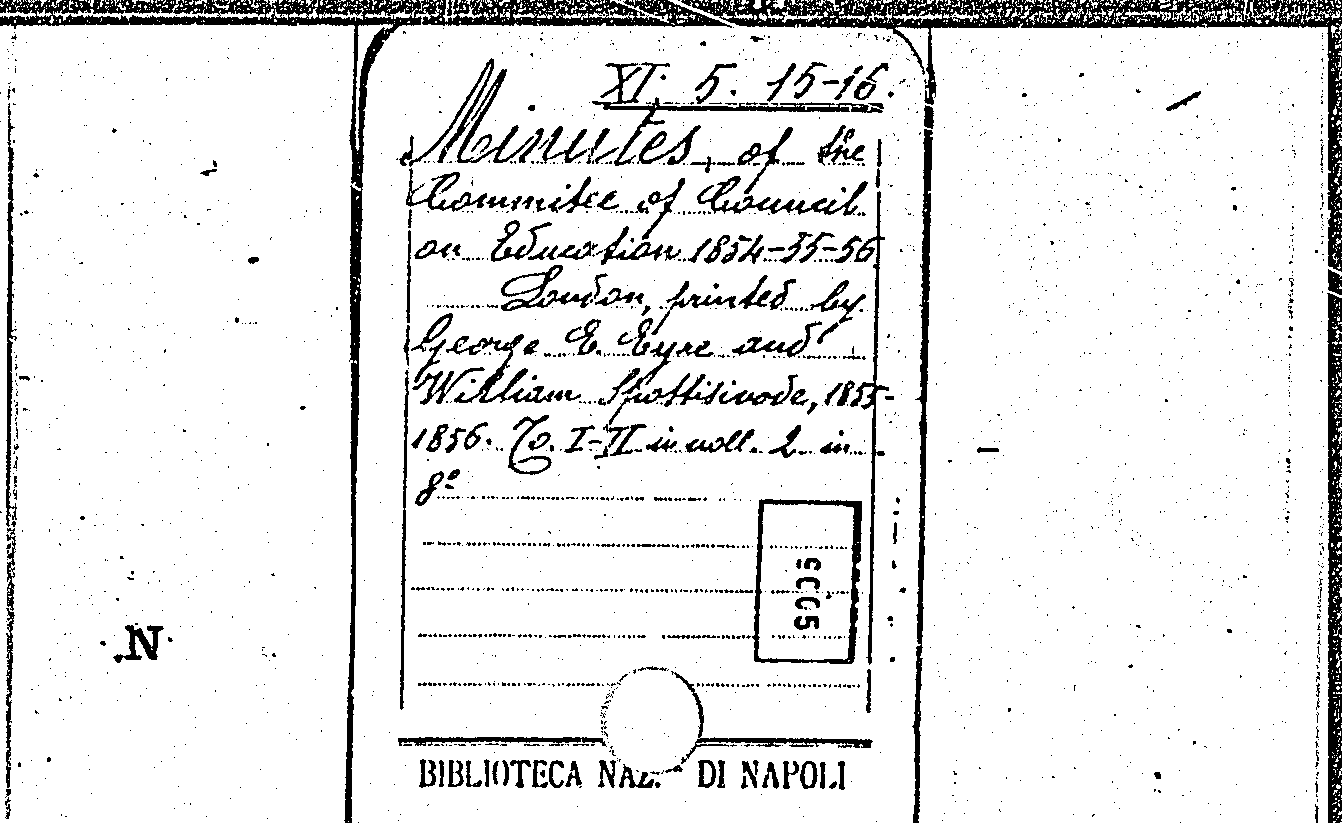 XI. 5. 15-16.
Minutes, of the
Commitee of Council
on Education 1854-55-56
London, printed by
George E. Eyre and
William Spottisivode, 1855-
1856. To. I-II in voll. 2 in
8º
N
BIBLIOTECA NAZ. DI NAPOLI